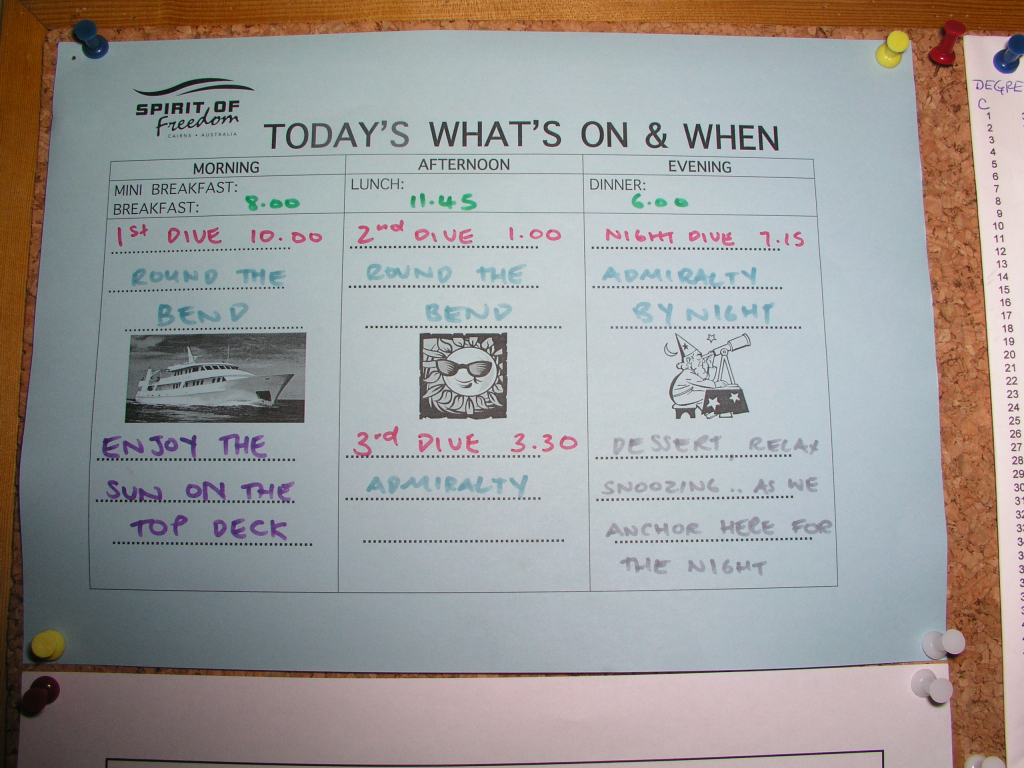 SPIRIT OF
Freedom
CAIRNS • AUSTRALIA
TODAY'S WHAT'S ON & WHEN
MORNING
MINI BREAKFAST:
BREAKFAST: 8.00
1st DIVE 10.00
ROUND THE
BEND
ENJOY THE
SUN ON THE
TOP DECK
AFTERNOON
LUNCH:
11.45
2nd DIVE 1.00
ROUND THE
BEND
3rd DIVE 3.30
ADMIRALTY
EVENING
DINNER:
6.00
NIGHT DIVE 7.15
ADMIRALTY
BY NIGHT
DESSERT, RELAX
SNOOZING .. AS WE
ANCHOR HERE FOR
THE NIGHT
DEGRE
C
1
2
3
4
5
6
7
8
9
10
11
12
13
14
15
16
17
18
19
20
21
22
23
24
25
26
27
28
29
30